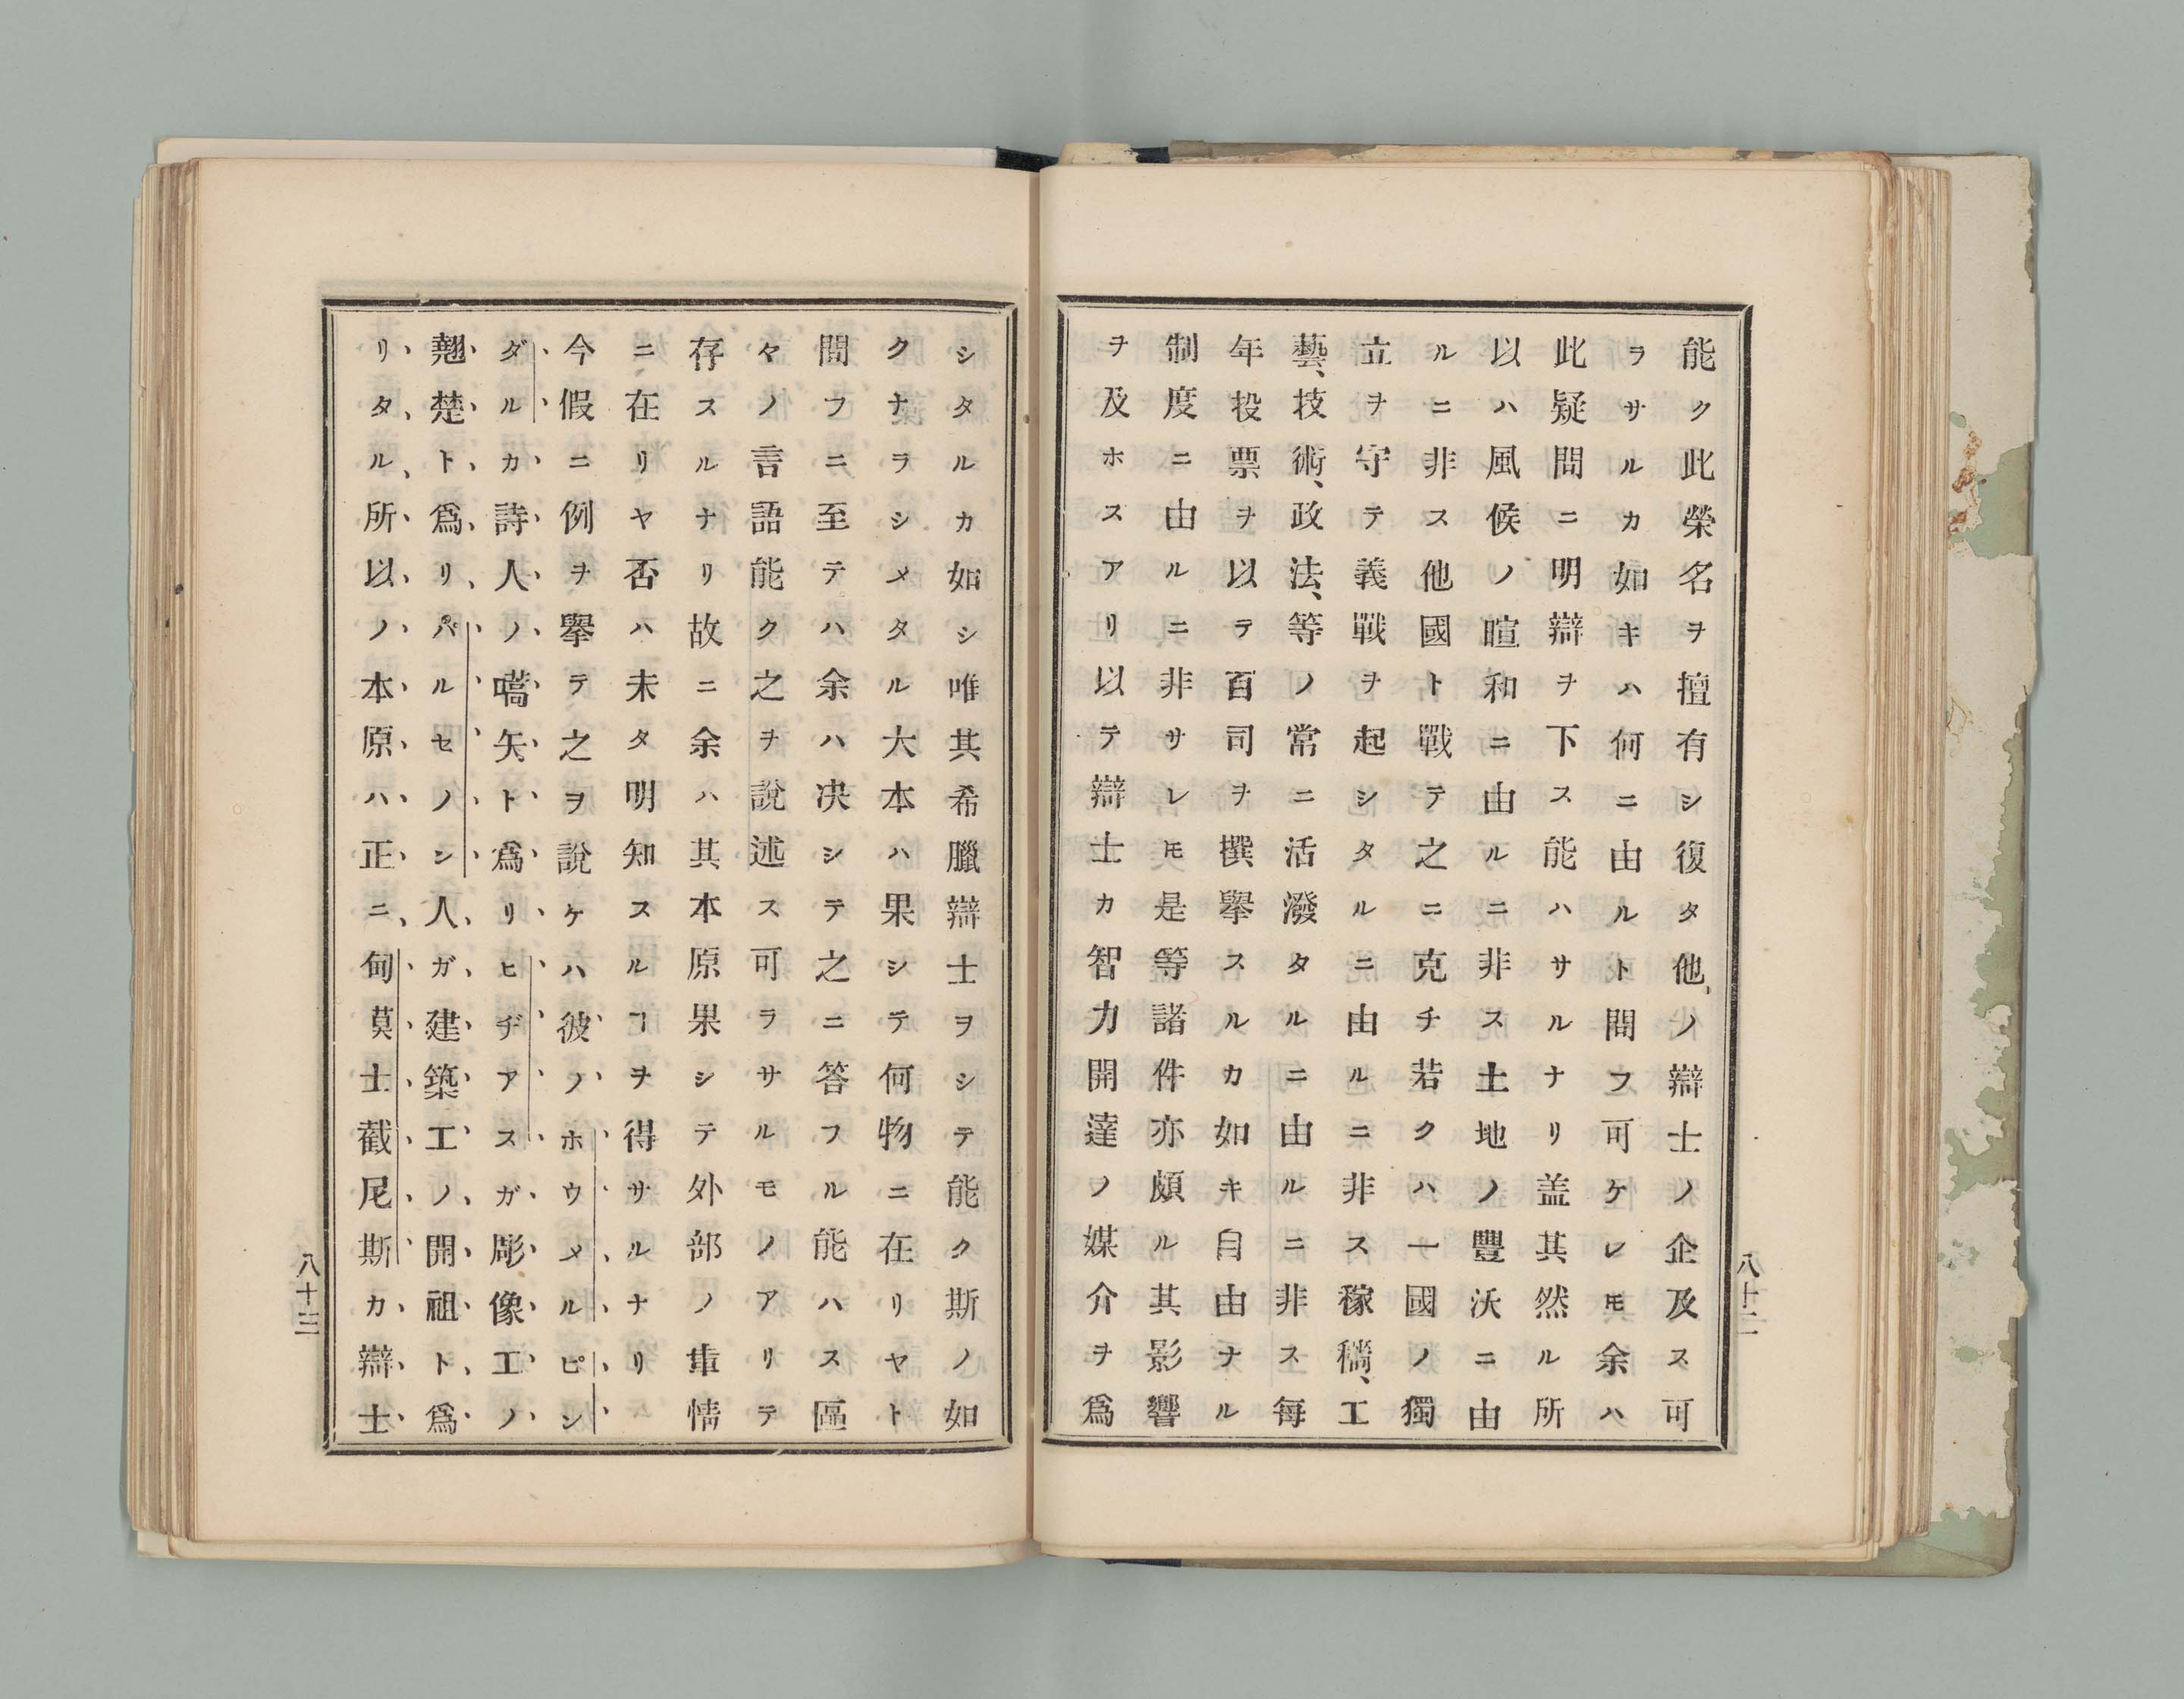 能ク此榮名ヲ擅有シ復タ他、ノ辯士ノ企及ス可
ラサルカ如キハ何ニ由ルト問フ可ケレ𪜈余ハ
此疑問ニ明辯ヲ下ス能ハサルナリ盖其然ル所
以ハ風候ノ暄和ニ由ルニ非ス土地ノ豐沃ニ由
ルニ非ス他國ト戰テ之ニ克チ若クハ一國ノ獨
立ヲ守テ義戰ヲ起シタルニ由ルニ非ス稼穡、工
藝、技術、政法、等ノ常ニ活潑タルニ由ルニ非ス每
年投票ヲ以テ百司ヲ撰擧スルカ如キ自由ナル
制度ニ由ルニ非サレ𪜈是等諸件亦頗ル其影響
ヲ及ホスアリ以テ辯士カ智力開達ノ媒介ヲ爲
八十二
シタルカ如シ唯其希臘辯士ヲシテ能ク斯ノ如
クナラシメタル大本ハ果シテ何物ニ在リヤト
問フニ至テハ余ハ决シテ之ニ答フル能ハス區
々ノ言語能ク之ヲ說述ス可ラサルモノアリテ
存スルナリ故ニ余ハ其本原果シテ外部ノ事情
ニ在リヤ否ハ未タ明知スルヿヲ得サルナリ
今假ニ例ヲ擧テ之ヲ說ケハ彼ノホウメルピン
ダルカ詩人ノ嚆矢ト爲リヒヂアスガ彫像工ノ
翹楚ト爲リパルセノン人ガ建築工ノ開祖ト爲
リタル所以ノ本原ハ正ニ甸莫士截尼斯カ辯士
八十三